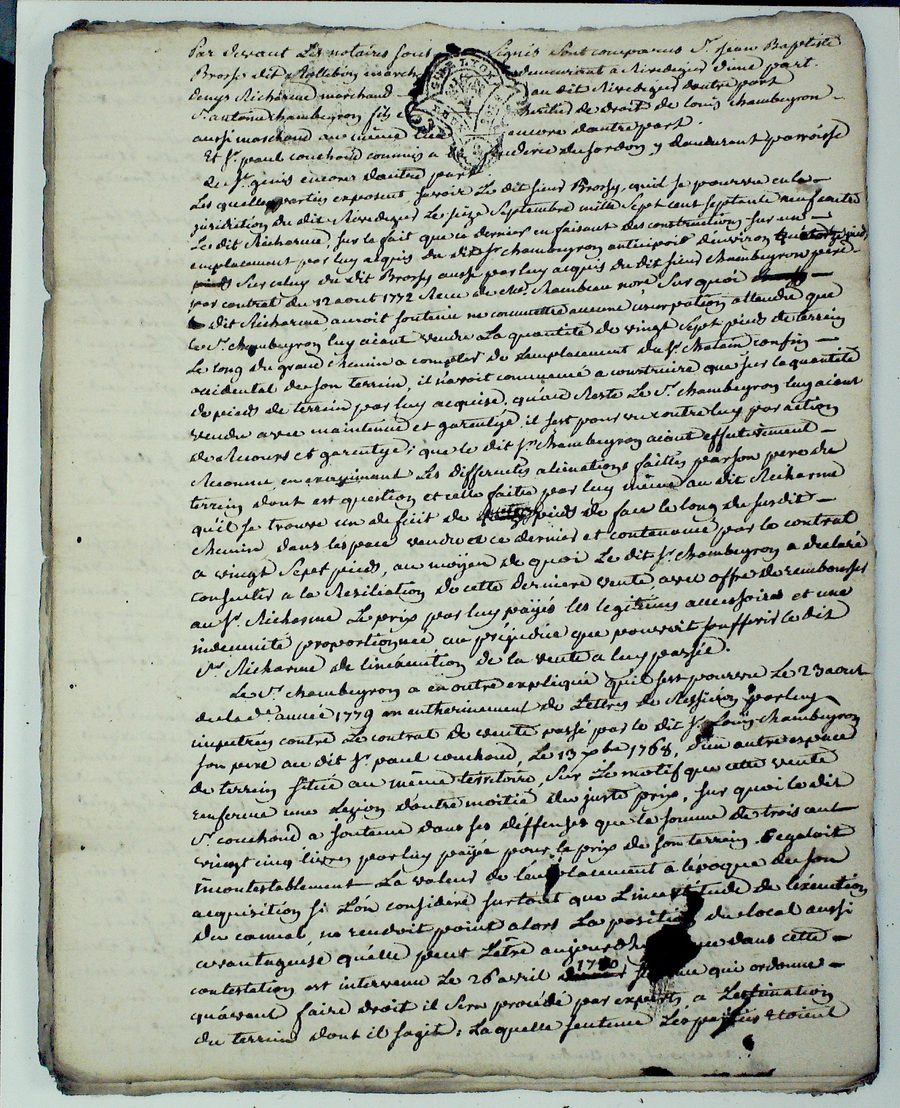 Par devant Les notaires sous signés sont comparus Sr. Jean Baptiste
Brosse dit Rollibon march demeurant a Rivedegier d'une part.
denys Richarme marchand au dit Rivedegier d'autre part
Sr. antoine chambeyron fils et heritié de droit de louis chambeyron
aussi marchand au même lieu encore d'autre part.
Et Sr. paul couchoud commis a verrerie du fordon y demeurant parroisse
de St. genis encore d'autre part
Les quelles parties exposent, savoir Le dit sieur Brossy, quil se pourvu en la
jurisdiction du dit Rivedegier Le seize Septembre mille Sept cent Septante neuf contre
Le dit Richarme, sur le fait que ce dernier en faisant des constructions sur un
emplacement par luy acquis du dit Sr. chambeyron anticipoit d'environ pieds
Sur celuy du dit Brossy aussi par luy acquis du dit sieur Chambeyron pere
par contrat du 12 aout 1772 Recu de Me. noré, Sur quoi
dit Richarme auroit soutenu ne commettre aucune usurpation attendu que
le Sr. chambeyron luy aiant vendu La quantité de vingt Sept pieds de terrein
Le long du grand chemin a compter de L'emplacement du Sr. confin
occidental de son terrein, il n'avoit commencé a construire que sur la quantité
de pieds de terrein par luy acquise, qu'au Reste Le Sr. chambeyron luy aiant
vendu avec maintenue et garentye, il s'est pourvu contre luy par action
de Recours et garentye; que le dit Sr. chambeyron aiant effectivement
Reconnu, en examinant Les differentes alienations faites par son pere du
terrein dont est question et celle faite par luy même au dit Richarme
qu'il se trouve un deficit de pieds de face le long du susdit
chemin, dans l'espace vendu a ce dernier et contenance par le contrat
a vingt Sept pieds, au moyen de quoi Le dit Sr. Chambeyron a declaré
consentir a la Resiliation de cette derniere vente avec offre de rembourser
au Sr. Richarme Le prix par luy payé les legitimes accessoires et une
indemnité proportionnée au prejudice que pouvoit souffrir le dit
Sr. Richarme de l'inexécution de la vente a luy passée.
Le Sr. chambeyron a en outre expliqué qu'il s'est pourvu Le 23 aout
de la de. année 1779 en entherinement de Lettres de Ressision par luy
impetrées contre Le contrat de vente passé par le dit Sr. Louis chambeyron
son pere au dit Sr. paul couchoud, Le 13 xbre 1768, d'un autre espace
de terrein situé au même territoire, Sur Le motif que cette vente
enferme une Lezion d'outre moitié du juste prix, sur quoi le dit
Sr. couchoud a soutenu dans ses deffenses que la somme de trois cent
vingt cinq livres par luy payée pour le prix de son terrein Egaloit
incontestablement La valeur de l'emplacement a lepoque de son
acquisition si L'on considere surtout que L'incertitude de L'execution
du cannal, ne rendoit point alors La position du local aussi
avantageuse qu'elle peut L'être aujourdhuy que dans cette
contestation est intervenu Le 26 avril 1780 Sentence qui ordonne
qu'avant faire droit il sera procédé par experts, a L'estimation
du terrein dont il s'agit; Laquelle sentence Les parties etoient